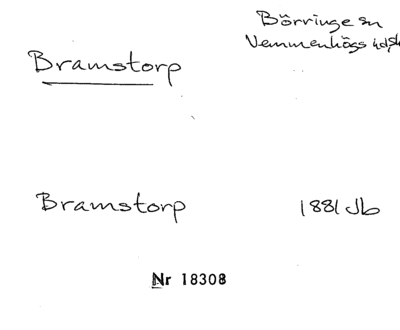 Börringe sn
Vemmenhögs hd, sk
Bramstorp
Bramstorp 1881 Jb
Nr 18308